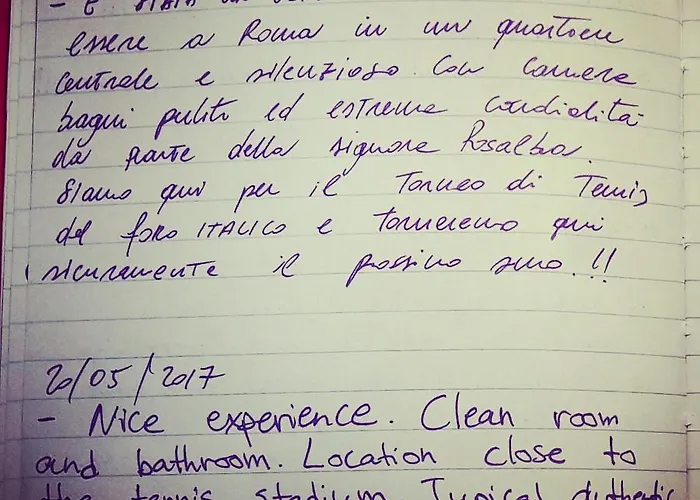 - È STATA
essere a Roma in un quartiere
centrale e silenzioso. Con camere
bagni puliti ed estrema cordialità
da parte della signora Rosalba.
Siamo qui per il Torneo di Tennis
del foro ITALICO e torneremo qui
sicuramente il prossimo anno.!!
20/05/2017
- Nice experience. Clean room
and bathroom. Location close to
the tennis stadium. Typical authentic